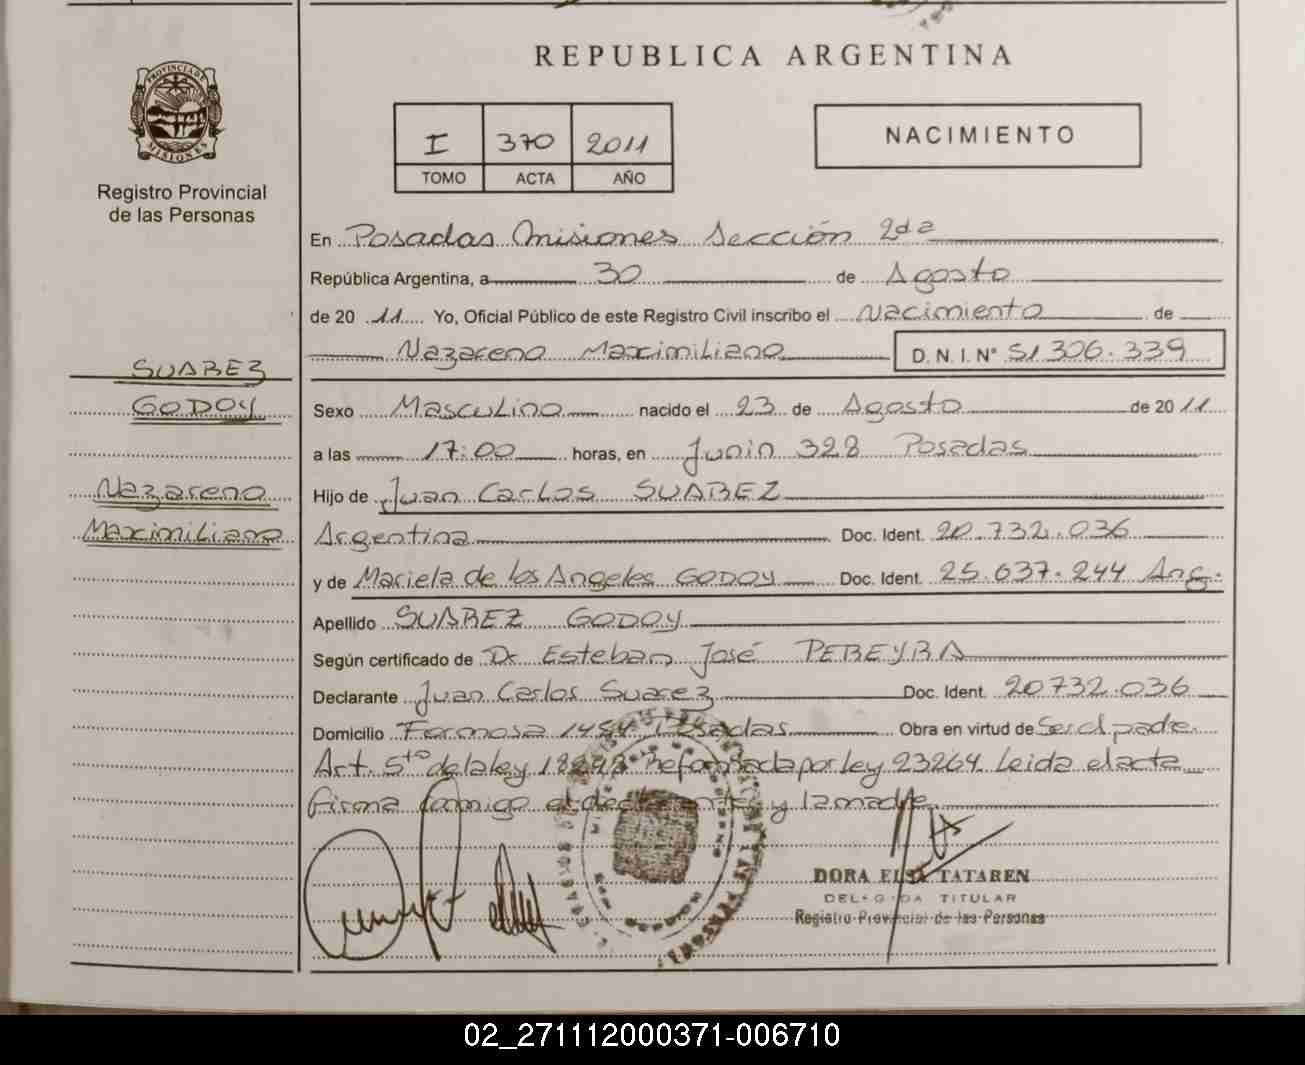 REPUBLICA ARGENTINA
PROVINCIA DE
MISIONES
Registro Provincial
de las Personas
I 370 2011
TOMO ACTA AÑO
NACIMIENTO
En Posadas Misiones Sección 2da
República Argentina, a 30 de Agosto
de 20 11 Yo, Oficial Público de este Registro Civil inscribo el Nacimiento de
Nazareno Maximiliano D. N. I. N° 51.306.339
SUAREZ
GODOY
Nazareno
Maximiliano
Sexo Masculino nacido el 23 de Agosto de 20 11
a las 17:00 horas, en Junin 328 Posadas
Hijo de Juan Carlos SUAREZ
Argentina Doc. Ident. 20.732.036
y de Mariela de los Angeles GODOY Doc. Ident. 25.037.244 Arg.
Apellido SUAREZ GODOY
Según certificado de Dr Esteban José PEREYRA
Declarante Juan Carlos Suarez Doc. Ident. 20732.036
Domicilio Formosa Posadas Obra en virtud de Ser el padre.
Art. 5to de la ley 18248 Reformada por ley 23264 Leida el acta
firma conmigo el declarante y la madre
DORA ELSA TATAREN
DELEGADA TITULAR
Registro Provincial de las Personas
02_271112000371-006710